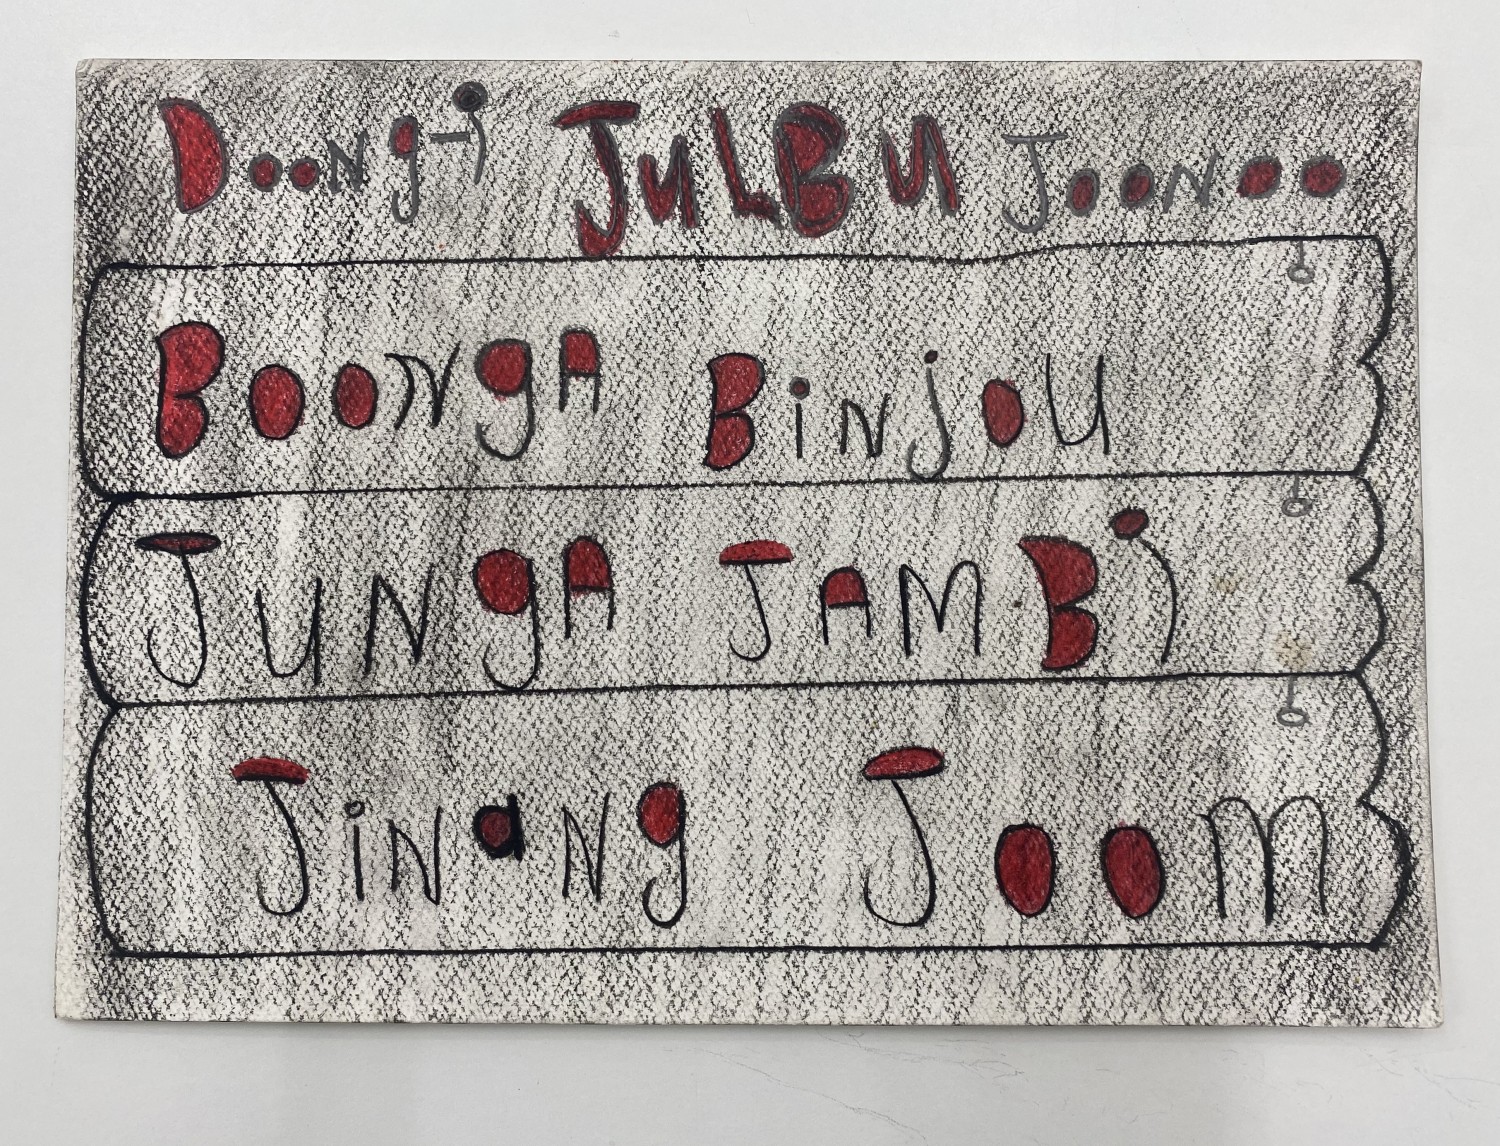 Doong-i JULBU JOONOO
BOONGA BinjOU
JUNGA JAMBi
JinaNg Joom